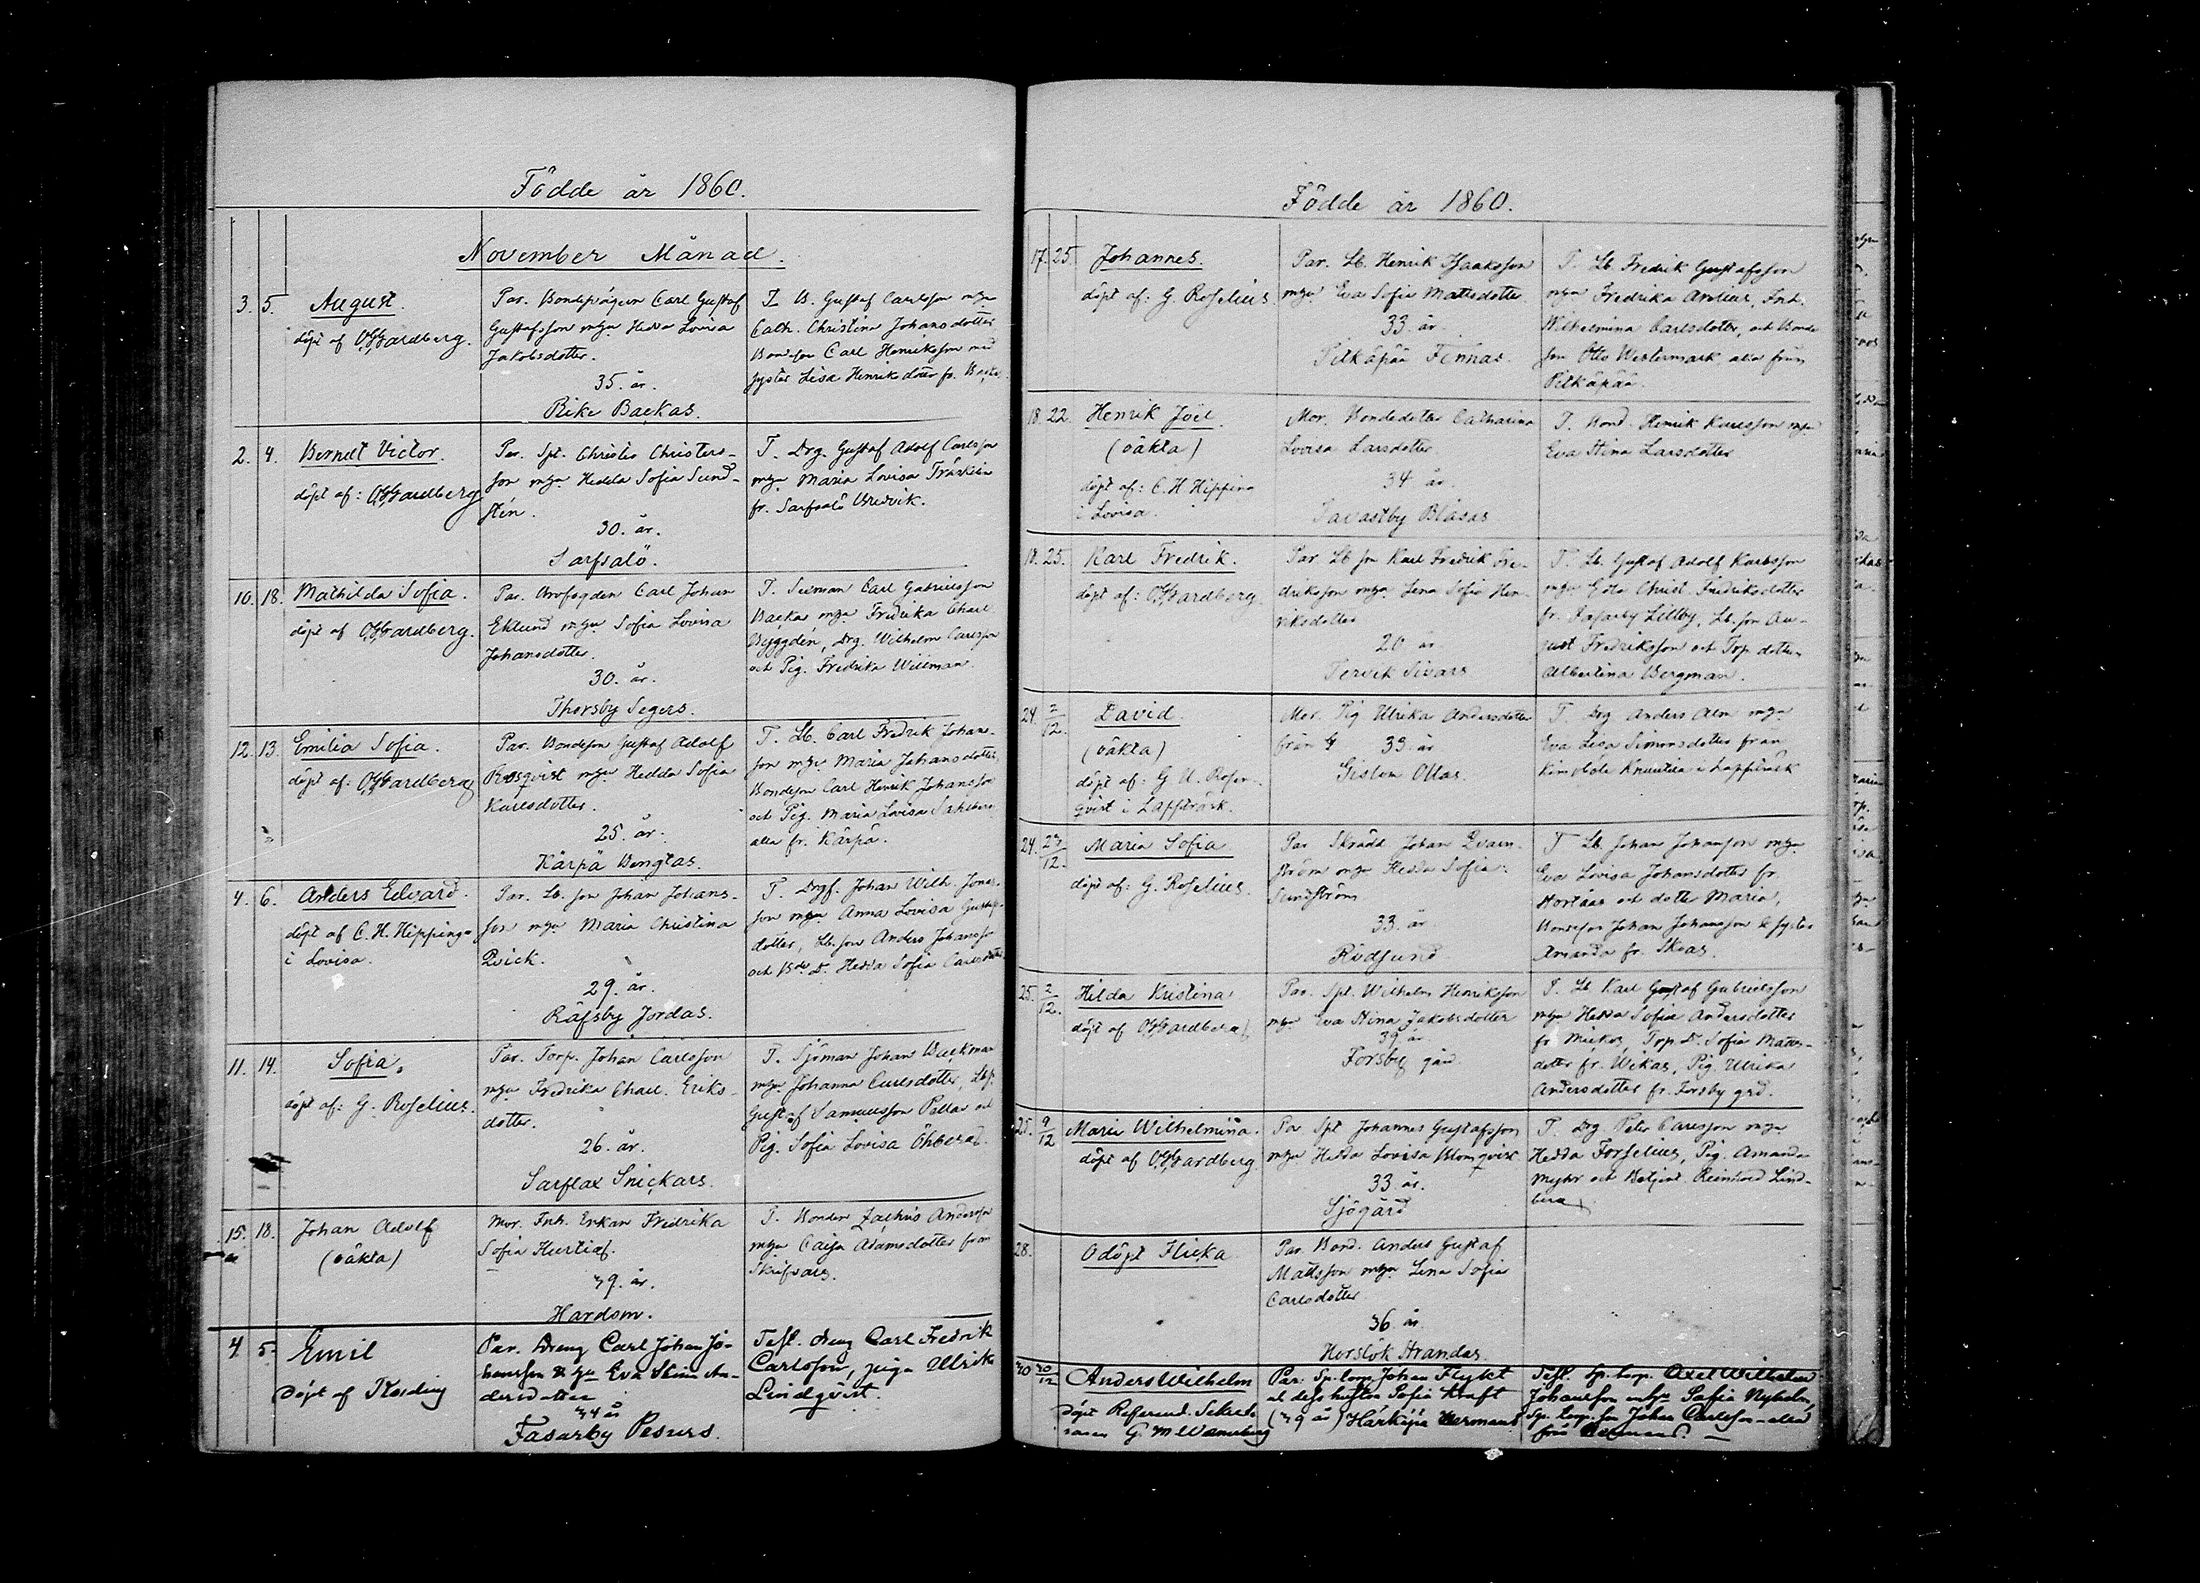 Födde år 1860.
November Månad.
3. 5. August.
döpt af O. Gardberg.
Par. Bondesågen Carl Gustaf
Gustafsson m hu Hedda Lovisa
Jakobsdotter.
35. år.
Rike Backas.
T. B. Gustaf Carlsson m hu
Cath. Christina Johansdotter
Bondeson Carl Henriksson med
syster Lisa Henriksdotter fr. Backas.
2. 4. Berndt Victor.
döpt af: O. Gardberg
Par. Spt. Christer Christers-
son m hu Hedda Sofia Sund-
stén.
30. år.
Sarfsalö.
T. Drg. Gustaf Adolf Carlsson
m hu Maria Lovisa
fr. Sarfsalö
10. 18. Mathilda Sofia.
döpt af O. Gardberg.
Par. Carl Johan
Eklund m hu Sofia Lovisa
Johansdotter.
30. år.
Thorsby Segers.
T. Carl Gabrielsson
Backas m hu Fredrika Charl.
Byggdén, Drg. Wilhelm Carlsson
och Pig. Fredrika Willman.
12. 13. Emilia Sofia.
döpt af: O. Gardberg
Par. Bondeson Gustaf Adolf
Rosqvist m hu Hedda Sofia
Karlsdotter.
25. år.
Kärpä Bengtas.
T. Lb. Carl Fredrik Johans-
son m hu Maria Johansdotter,
Bondeson Carl Henrik Johansson
och Pig. Maria Lovisa
alla fr. Kärpä.
4. 6. Anders Edvard.
döpt af C. H. Hipping
i Lovisa.
Par. Lb. son Johan Johans-
son m hu Maria Christina
Qvick.
29. år.
Räfsby Jordas.
T. Johan Wilh. Jonas-
son m hu Anna Lovisa Gustafs-
dotter, Lb. son Anders Johansson
och Hedda Sofia Carlsdotter
11. 14. Sofia.
döpt af: G. Roselius.
Par. Torp. Johan Carlsson
m hu Fredrika Charl. Eriks-
dotter.
26. år.
Sarflax Snickars.
T. Sjöman Johan Wackman
m hu Johanna Carlsdotter,
Gustaf Samuelsson Pallas och
Pig. Sofia Lovisa Öhberg.
15. 18. Johan Adolf
(oäkta)
Mor. Inh. Enkan Fredrika
Sofia Hurtig.
39. år.
Hardom.
T. Bonden Zachris Andersson
m hu Caisa Adamsdotter från
Skifvars.
4. 5. Emil
Döpt af
Par. Dreng Carl Johan Jo-
hansson & hu Eva Stina An-
dersdotter
34 år
Fasarby Pesurs.
Test. dreng Carl Fredrik
Carlsson, piga Ulrika
Lindqvist.
Födde år 1860.
17. 25. Johannes.
döpt af: G. Roselius.
Par. Lb. Henrik Isaaksson
m hu Eva Sofia Mattsdotter
33. år.
Pitkäpää Finnas.
T. Lb. Fredrik Gustafsson
m hu Fredrika Inh.
Wilhelmina Carlsdotter, och Bonde
son Otto Westermark alla från
Pitkäpää.
18. 22. Henrik Joel.
(oäkta)
döpt af: C. H. Hipping
i Lovisa.
Mor. Bondedotter Catharina
Lovisa Larsdotter
34 år.
Tavastby Blåsas
T. Bond. Henrik Karlsson m hu
Eva Stina Larsdotter
18. 25. Karl Fredrik.
döpt af: O. Gardberg
Par. Lb son Karl Fredrik Fre-
driksson m hu Lena Sofia Hen-
riksdotter
20 år
Tervik Sivars
T. Lb. Gustaf Adolf Karlsson
m hu Christ. Fredriksdotter
fr. Fasarby Lillby, Lb. son Au-
gust Fredriksson och Torp. dotter
Albertina Bergman.
24. 2/12. David.
(oäkta)
döpt af: G A. Rosen-
qvist i Lappträsk.
Mor. Pig Ulrika Andersdotter
från 33. år
Gislom Ollas
T. Drg Anders Alm m hu
Eva Lisa Simonsdotter från
Kimoböle Knuutila i Lappträsk
24. 23/12. Maria Sofia
döpt af: G. Roselius.
Par Skrädd Johan Qvarn-
ström m hu Hedda Sofia
Sundström
33. år
Rödsund.
T Lb. Johan Johansson m hu
Eva Lovisa Johansdotter fr.
och dotter Maria,
Bondeson Johan Johansson & syster
Amanda fr. Skeas.
25. 2/12. Hilda Kristina
döpt af O. Gardberg
Par. Spt. Wilhelm Henriksson
m hu Eva Stina Jakobsdotter
39 år
Forsby gård
T. Lb Karl Gustaf Gabrielsson
m hu Hedda Sofia Andersdotter
fr Mickos, Torp. D. Sofia Matts-
dotter fr. Wekas, Pig Ulrika
Andersdotter fr. Forsby grd.
25. 9/12 Maria Wilhelmina.
döpt af O. Gardberg
Par Spt Johannes Gustafsson
m hu Hedda Lovisa Blomqvist
33 år.
Sjögård
T. Drg Peter Carlsson m hu
Hedda Forselius, Pig. Amanda
Myhr och Betjent Reinhold Lind-
berg
28. Odöpt Flicka
Par. Bond. Anders Gustaf
Mattsson m hu Lena Sofia
Carlsdotter
36 år
Horslök Strandas.
30 30/12 Anders Wilhelm
Döpt Referend. Sekrete-
raren G. M. Wænerberg
Par. Sp. torp. Johan Flykt
och dess hustru Sofia Kraft
(39 år) Härkäpää Hermans
Test. Sp. torp. Axel Wilhelm
Johansson m hu Sofia Nyholm,
Sp. torp. son Johan Carlsson - alla
från Hermans.